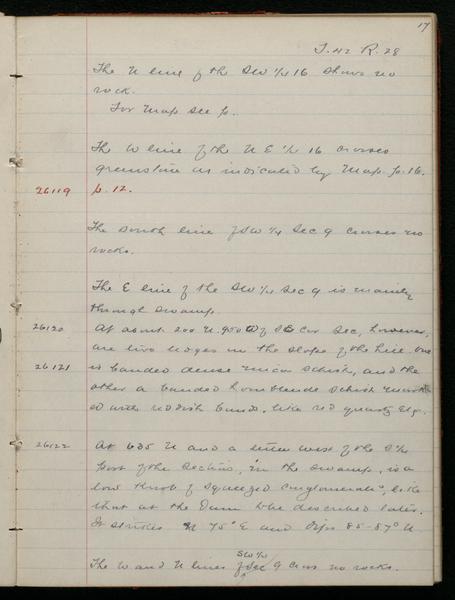 17
T. 42 R. 28
The N line of the SW 1/4 16 shows no
rock.
For Map see p.
The W line of the N E 1/4 16 crosses
greenstone as indicated by Map. p. 16.
26119 p. 12.
The South line of SW 1/4 Sec 9 crosses no
rocks.
The E line of the SW 1/4 Sec 9 is mainly
through swamp.
26120 At about 200 N. 900 W of SE Cor Sec, however,
are two ledges in the slope of the hill. One
26121 is banded dense mica schist, and the
other a banded hornblende schist
ed with reddish bands, like red quartz
26122 At 635 N and a little west of the S 1/4
post of the section, in the swamp, is a
low knob of squeezed conglomerate, like
that at the Dam to be described later.
It strikes N 75° E and dips 85-87° N.
The W and N lines of SW 1/4 Sec 9 cross no rocks.